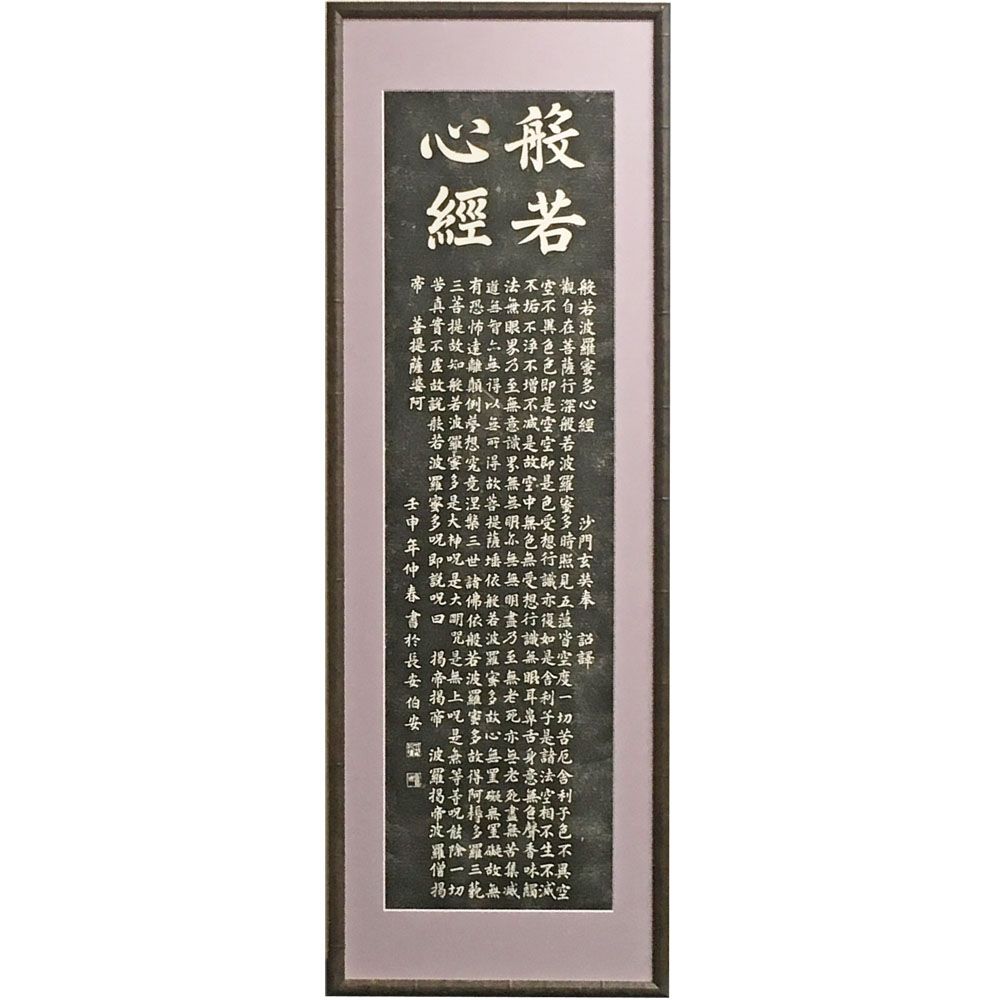 般若
心經
般若波羅蜜多心經 沙門玄奘奉 詔譯
觀自在菩薩行深般若波羅蜜多時照見五蘊皆空度一切苦厄舍利子色不異空
空不異色色即是空空即是色受想行識亦復如是舍利子是諸法空相不生不滅
不垢不淨不增不减是故空中無色無受想行識無眼耳鼻舌身意無色聲香味觸
法無眼界乃至無意識界無無明亦無無明盡乃至無老死亦無老死盡無苦集滅
道無智亦無得以無所得故菩提薩埵依般若波羅蜜多故心無罣礙無罣礙故無
有恐怖遠離顛倒夢想究竟涅槃三世諸佛依般若波羅蜜多故得阿耨多羅三藐
三菩提故知般若波羅蜜多是大神咒是大明咒是無上咒是無等等咒能除一切
苦真實不虛故說般若波羅蜜多咒即說咒曰 揭帝揭帝 波羅揭帝波羅僧揭
帝 菩提薩婆訶
壬申年仲春書於長安伯安